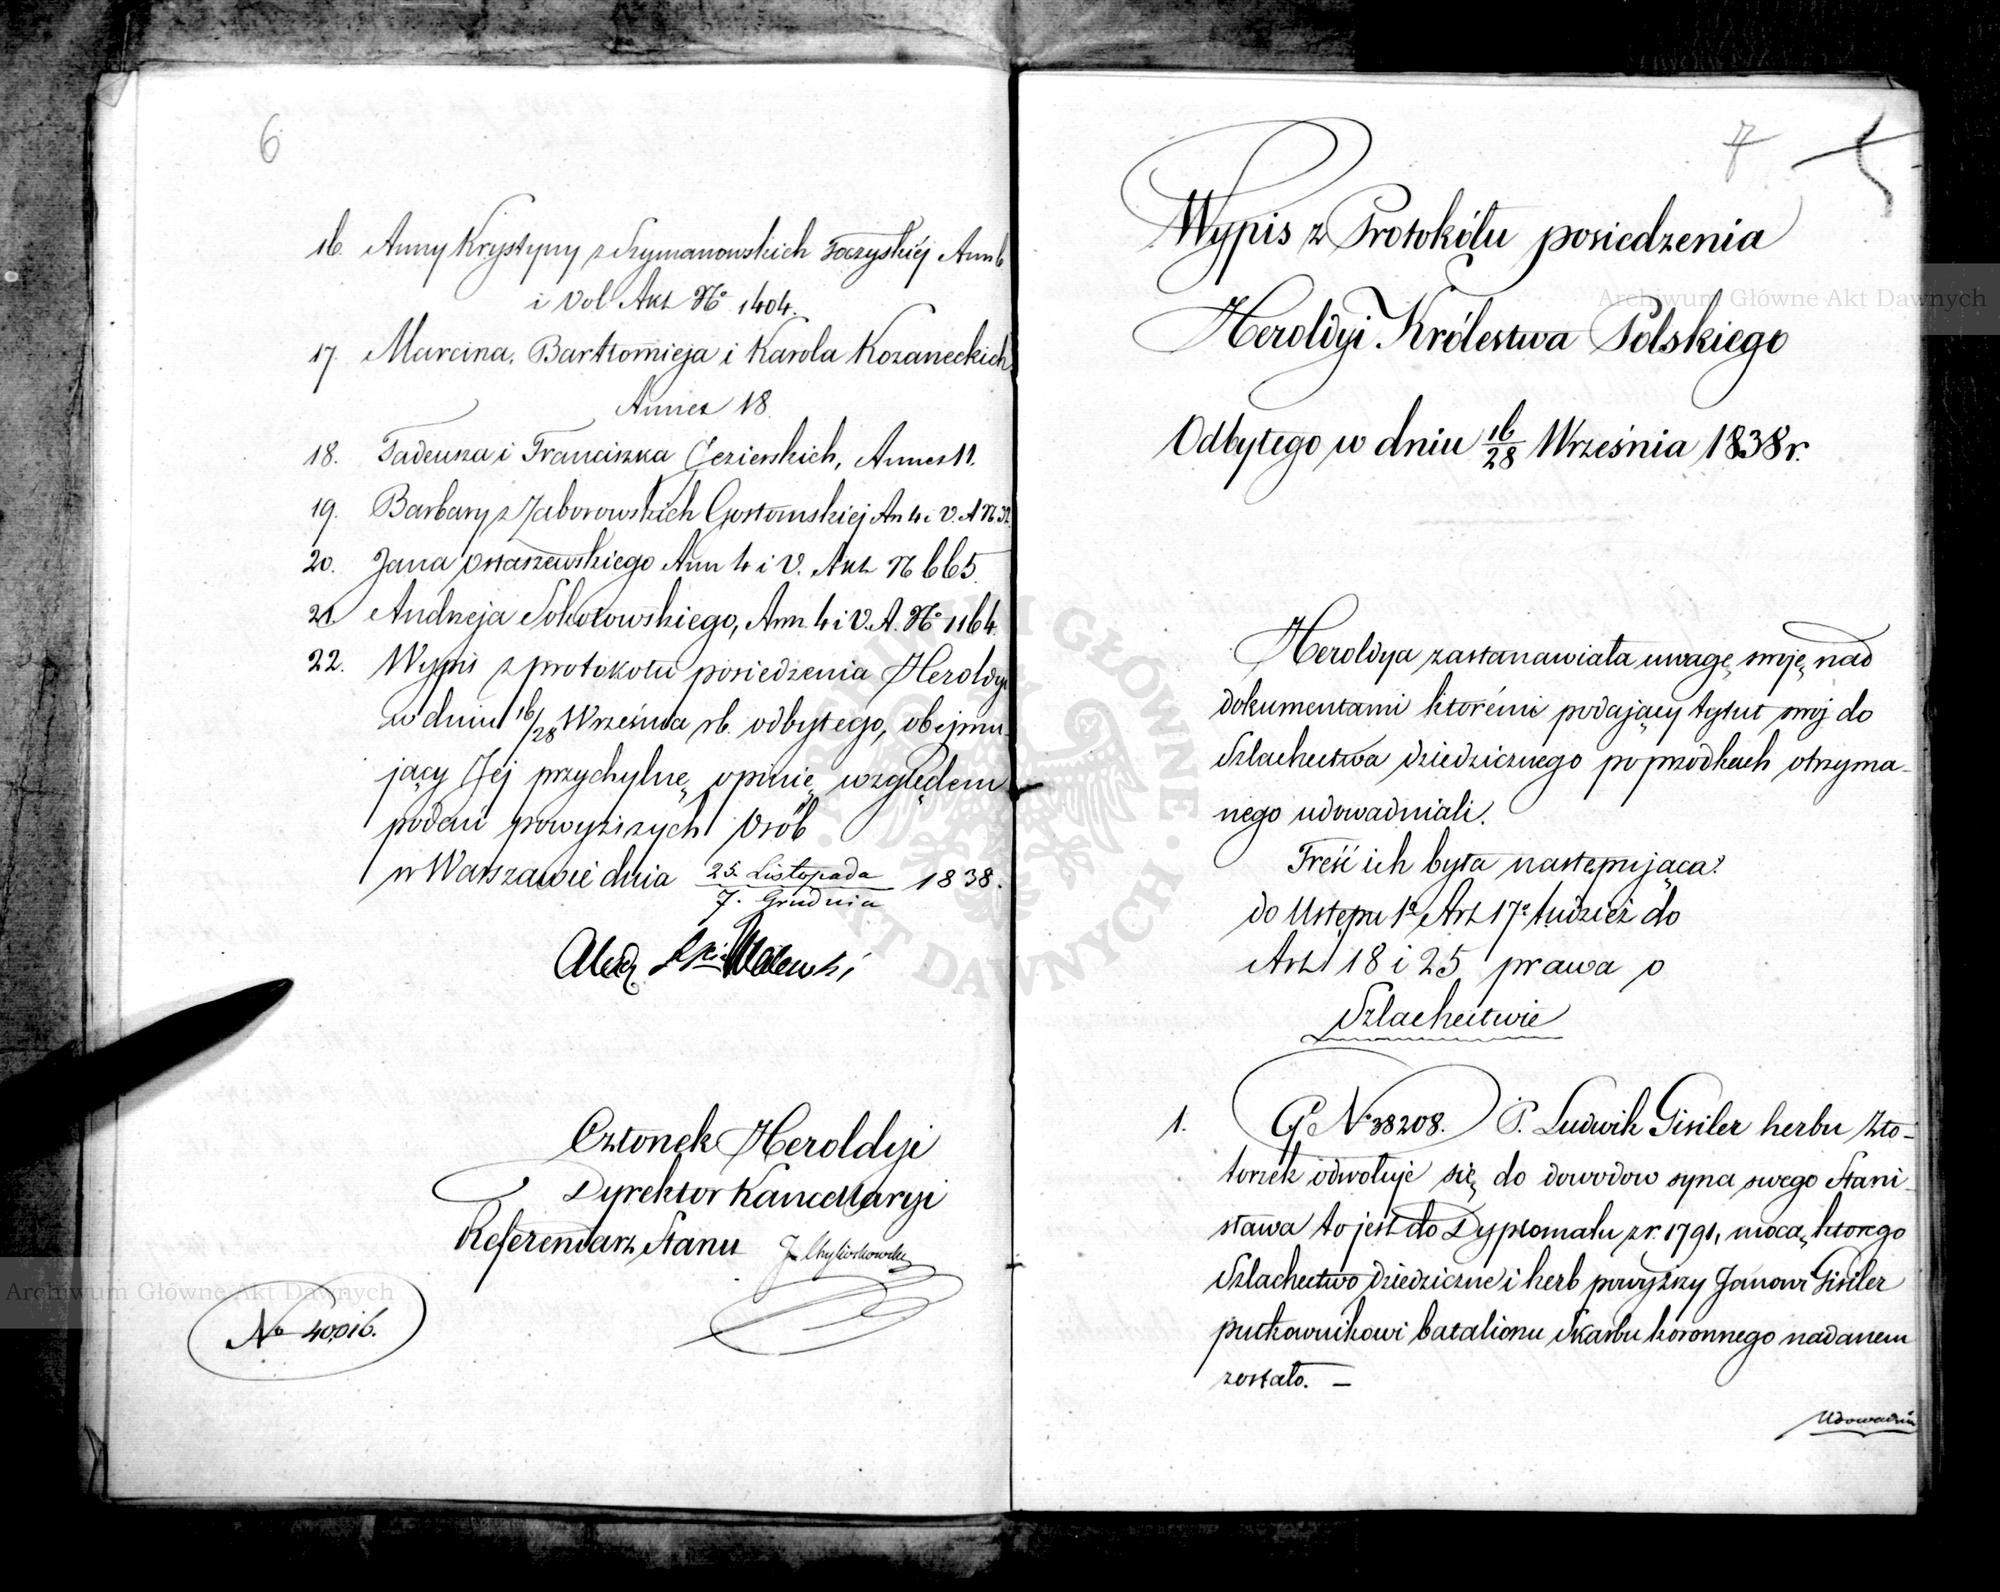 6
16. Anny Krystyny z Szymanowskich Toczyskiéj Ann 6
i Vol Akt No 1404.
17. Marcina, Bartłomieja i Karola Kozaneckich
Annex 18.
18. Tadeusza i Franciszka Jezierskich, Annex 11.
19. Barbary z Zaborowskich Gostomskiej An 4 i V. A N. 32
20. Jana Ossaszewskiego Ann 4 i V. Akt N 665.
21. Andrzeja Sokołowskiego, Ann. 4 i V. A. No 1164.
22. Wypis z protokołu posiedzenia Heroldyi
w dniu 16/28 Września rb. odbytego, obejmu-
jący Jej przychylną opinię względem
podań powyższych Osób
w Warszawie dnia 25. Listopada / 7. Grudnia 1838.
Członek Heroldyi
Dyrektor Kancellaryi
Referendarz Stanu
No 40,016.
7
Wypis z Protokółu posiedzenia
Heroldyi Królestwa Polskiego
Odbytego w dniu 16/28 Września 1838 r.
Heroldya zastanawiała uwagę swoję nad
dokumentami któremi podający tytuł swój do
Szlachectwa dziedzicznego po przodkach otrzyma-
nego udowadniali.
Treść ich była następująca:
do Ustępu 1o Art 17o tudzież do
Art 18 i 25 prawa o
Szlachectwie
1. No 38208. P. Ludwik Gisiler herbu Zło-
torzek odwołuje się do dowodow syna swego Stani-
sława to jest do Dyplomatu z r. 1791, mocą którego
Szlachectwo dziedziczne i herb powyższy Janowi Gisiler
pułkownikowi batalionu Skarbu koronnego nadanem
zostało. —
Udowadnia
Archiwum Główne Akt Dawnych
Archiwum Główne Akt Dawnych
ARCHIWUM GŁÓWNE AKT DAWNYCH